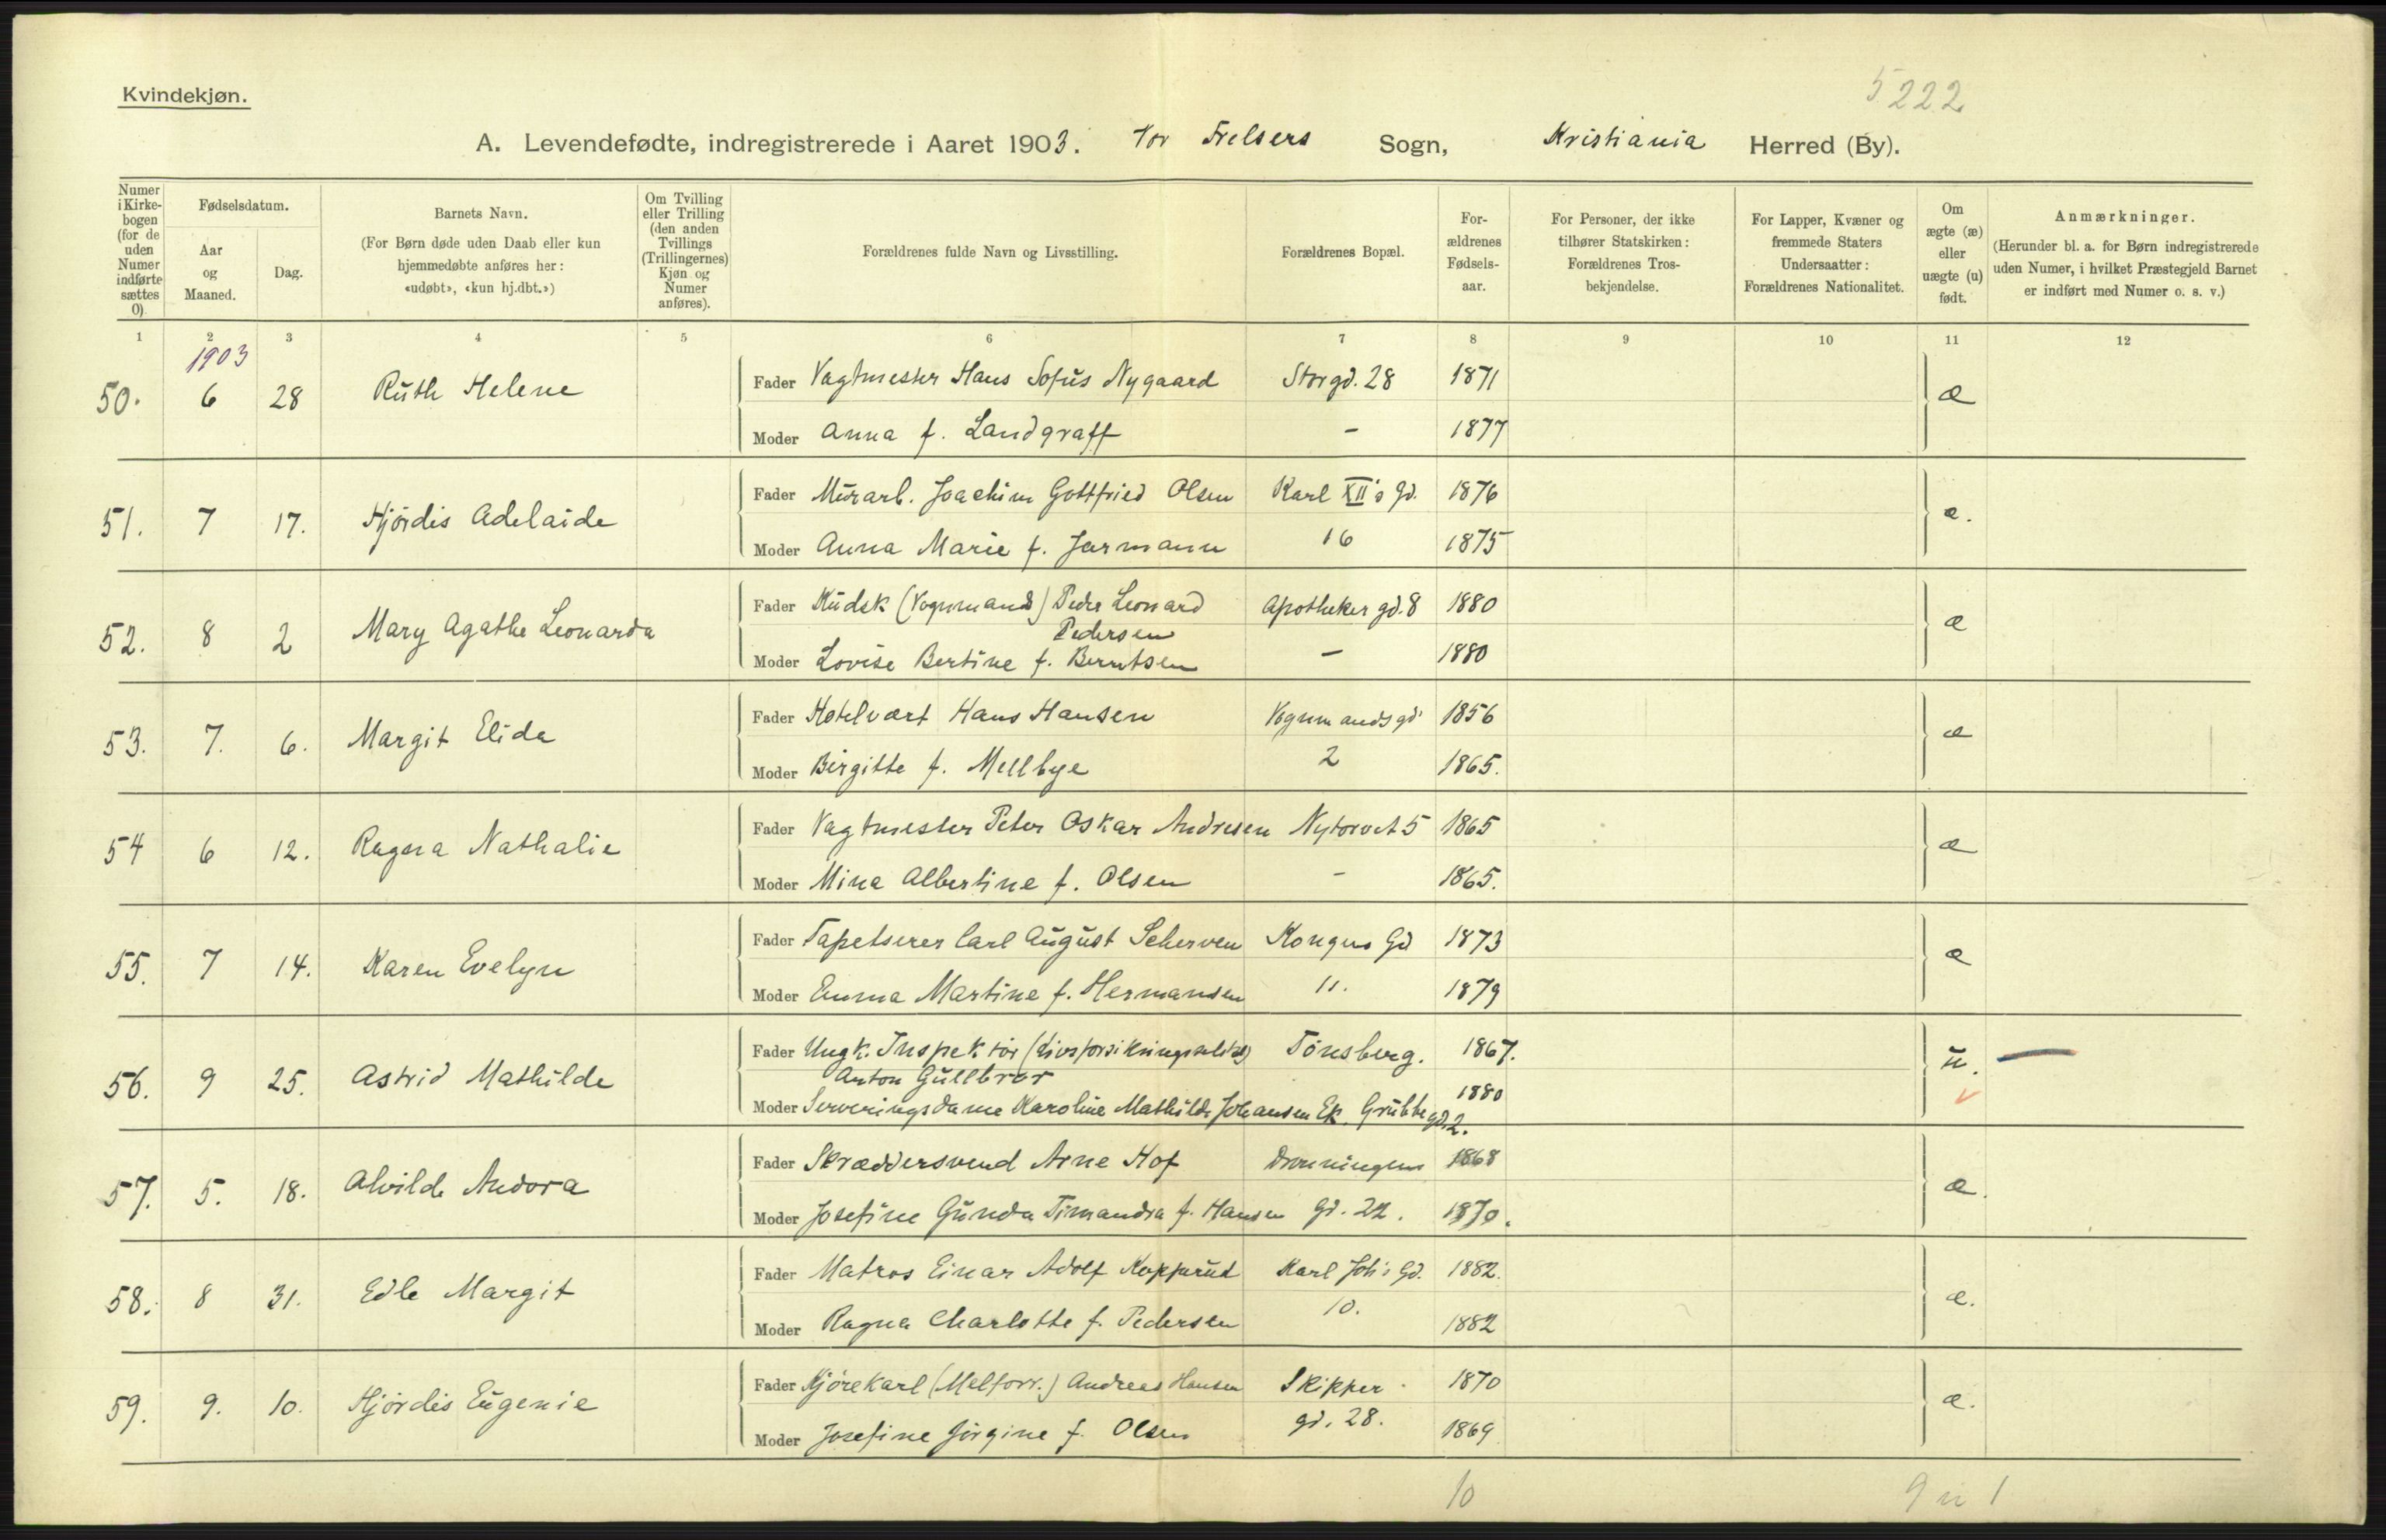 Kvindekjøn.
5222
A. Levendefødte, indregistrerede i Aaret 1903. Vor Frelsers Sogn, Kristiania Herred (By).
Numer i Kirkebogen (for de uden Numer indførte sættes 0)
Fødselsdatum.
Aar og Maaned.
Dag.
Barnets Navn.
(For Børn døde uden Daab eller kun
hjemmedøbte anføres her:
«udøbt», «kun hj.dbt.»)
Om Tvilling
eller Trilling
(den anden
Tvillings
(Trillingernes)
Kjøn og
Numer
anføres).
Forældrenes fulde Navn og Livsstilling.
Forældrenes Bopæl.
For-
ældrenes
Fødsels-
aar.
For Personer, der ikke
tilhører Statskirken:
Forældrenes Tros-
bekjendelse.
For Lapper, Kvæner og
fremmede Staters
Undersaatter:
Forældrenes Nationalitet.
Om
ægte (æ)
eller
uægte (u)
født.
Anmærkninger.
(Herunder bl. a. for Børn indregistrerede
uden Numer, i hvilket Præstegjeld Barnet
er indført med Numer o. s. v.)
1 2 3 4 5 6 7 8 9 10 11 12
1903
50. 6 28 Ruth Helene Fader Vagtmester Hans Sofus Nygaard Storgd. 28 1871 æ
Moder Anna f. Landgraff - 1877
51. 7 17. Hjördis Adelaide Fader Murarb. Joachim Gottfried Olsen Karl XII's Gd. 1876 æ.
Moder Anna Marie f. Jarmann 16 1875
52. 8 2 Mary Agathe Leonarda Fader Kudsk (Vognmand) Peder Leonard Apotheker gd. 8 1880 æ
Pedersen
Moder Lovise Bertine f. Berntsen - 1880
53. 7. 6. Margit Elida Fader Hotelvært Hans Hansen Vognmandsgd. 1856 æ
Moder Birgitte f. Mellbye 2 1865.
54 6 12. Ragna Nathalie Fader Vagtmester Peter Oskar Andresen Nytorvet 5 1865 æ
Moder Mina Albertine f. Olsen - 1865.
55. 7 14. Karen Evelyn Fader Tapetserer Carl August Scherven Kongens Gd 1873 æ
Moder Emma Martine f. Hermansen 11. 1879
56. 9 25. Astrid Mathilde Fader Ungk. Inspektör Tönsberg. 1867. u.
Anton Gullbror
Moder Serveringsdame Karoline Mathilde Johansen Ek. Grubbegd. 2. 1880
57. 5. 18. Alvilde Andora Fader Skræddersvend Arne Hof Dronningens 1868 æ.
Moder Josefine Gunda Timandra f. Hansen Gd. 22. 1870.
58. 8 31. Edle Margit Fader Matros Einar Adolf Kopperud Karl Joh's Gd. 1882. æ.
Moder Ragna Charlotte f. Pedersen 10. 1882
59. 9. 10. Hjördis Eugenie Fader Kjörekarl (Melforr.) Andreas Hansen Skipper 1870 æ.
Moder Josefine Jörgine f. Olsen gd. 28. 1869
10 9 u 1